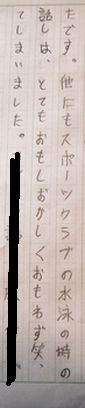 たです。他にもスポーツクラブの水泳の時の
話しは、とてもおもしおかしくおもわず笑、
てしまいました。